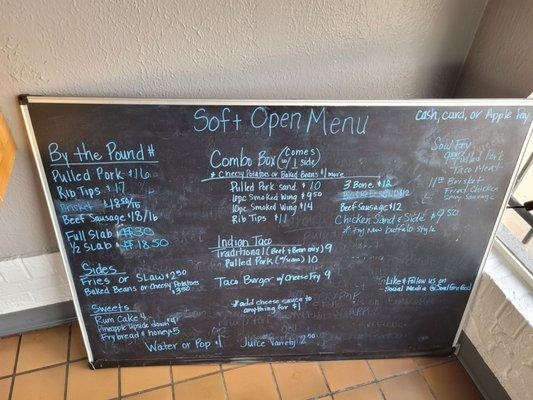 Soft Open Menu
cash, card, or Apple Pay
By the Pound #
Pulled Pork $16
Rib Tips $17
Brisket $18.50/lb
Beef Sausage $18/lb
Full Slab $30
1/2 Slab $18.50
Sides
Fries or Slaw $2.50
Baked Beans or Cheesy Potatoes
$3.50
Sweets
Rum Cake 4
Pineapple Upside down $4
Fry bread & honey $5
Combo Box (Comes w/ 1 side)
* Cheesy Potatoes or Baked Beans $1 more
Pulled Pork Sand. $10
6pc Smoked Wing $9.50
10pc Smoked Wing $14
Rib Tips $11
3 Bone $12
Beef Sausage $12
Chicken Sand & Side $9.50
* try new buffalo style
Indian Taco
Traditional (Beef & Bean only) 9
Pulled Pork 10
Taco Burger w/ Cheese Fry 9
* add cheese sauce to
anything for $1
Water or Pop $1
Juice Variety 2.50
Soul Fry
Pulled Pork
Taco Meat
11.00 Brisket
Fried Chicken
Spicy Sausage
Like & Follow us on
Social Media